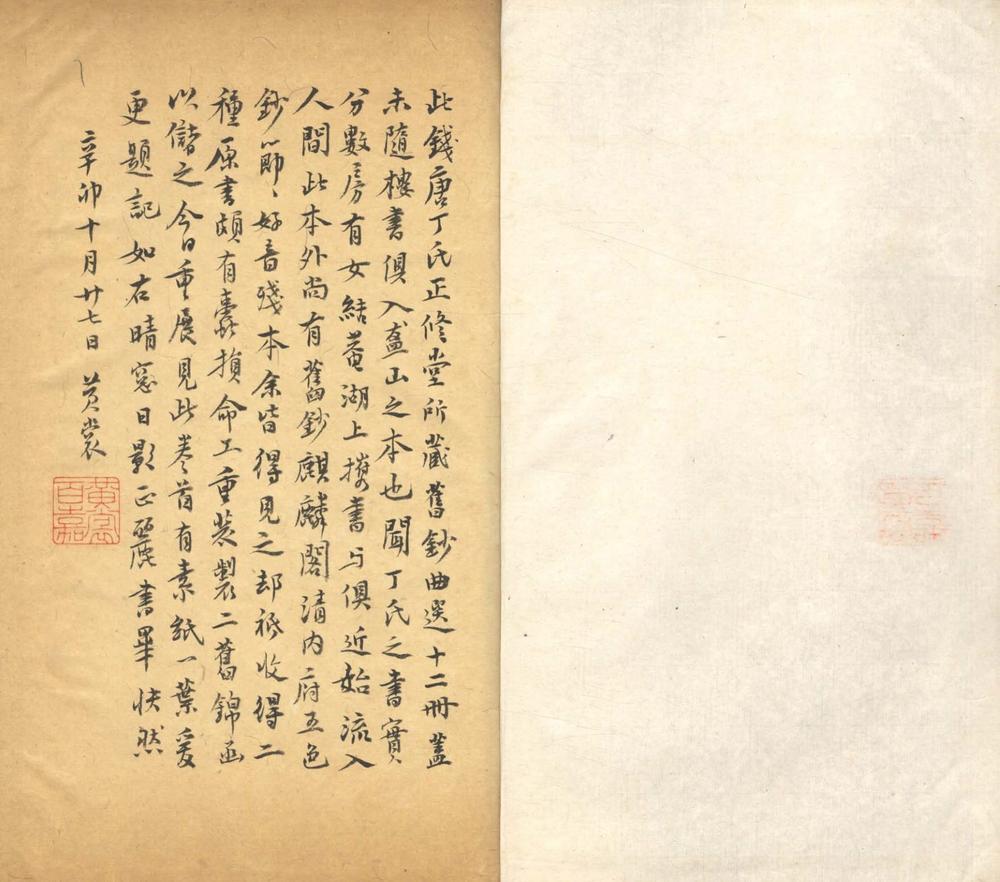 此錢唐丁氏正修堂所藏舊鈔曲選十二冊蓋
未隨樓書俱入盋山之本也聞丁氏之書實
分數房有女結菴湖上携書与俱近始流入
人間此本外尚有舊鈔麒麟閣清內府五色
鈔節〻好音殘本余皆得見之却祇收得二
種原書頗有蠹損命工重裝製二舊錦函
以儲之今日重展見此卷首有素紙一葉爰
更題記如右晴窓日影正麗書畢快然
辛卯十月廿七日 黃裳
黃裳百嘉